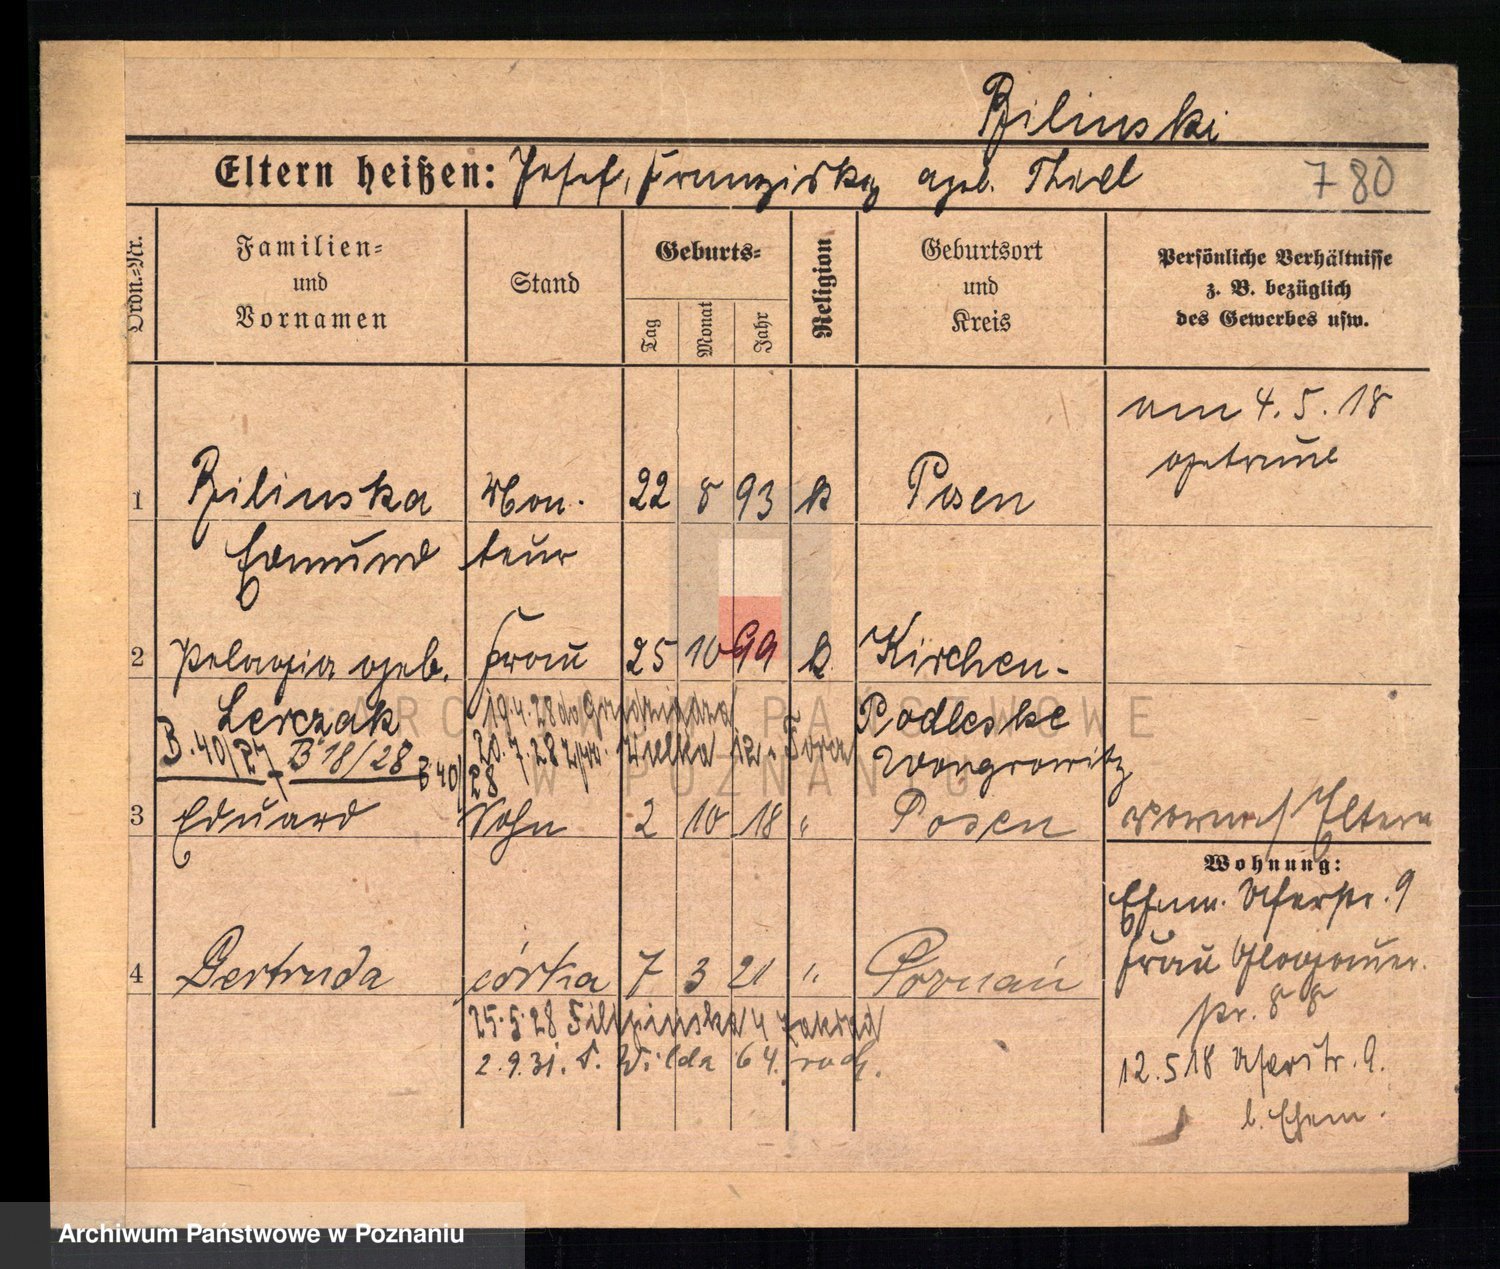 Bilinski
Eltern heißen: Josef, Franziska geb. Thiel
780
Ordn.-Nr.
Familien-
und
Vornamen
Stand
Geburts-
Tag
Monat
Jahr
Religion
Geburtsort
und
Kreis
Persönliche Verhältnisse
z. B. bezüglich
des Gewerbes usw.
am 4. 5. 18
getraut
1 Bilinska Mon- 22 8 93 k Posen
Edmund teur
2 Pelagia geb. Frau 25 10 99 k Kirchen-
Lerczak
19.4.28 do Grudziądza
Podleske
B.40/27 B 18/28 B 40/28
20.7.28 z/pr. Wielka 12
Wongrowitz
3 Eduard Sohn 2 10 18 " Posen
Eltern
Wohnung:
Ehem. Uferstr. 9
Frau Glogauer-
str. 88
4 Gertruda córka 7 3 21 " Poznań
25.5.28 4
2.9.31. Wilda 64. rodz.
12.5.18 Uferstr. 9.
b. Ehem.
ARCHIWUM PAŃSTWOWE
W POZNANIU
Archiwum Państwowe w Poznaniu